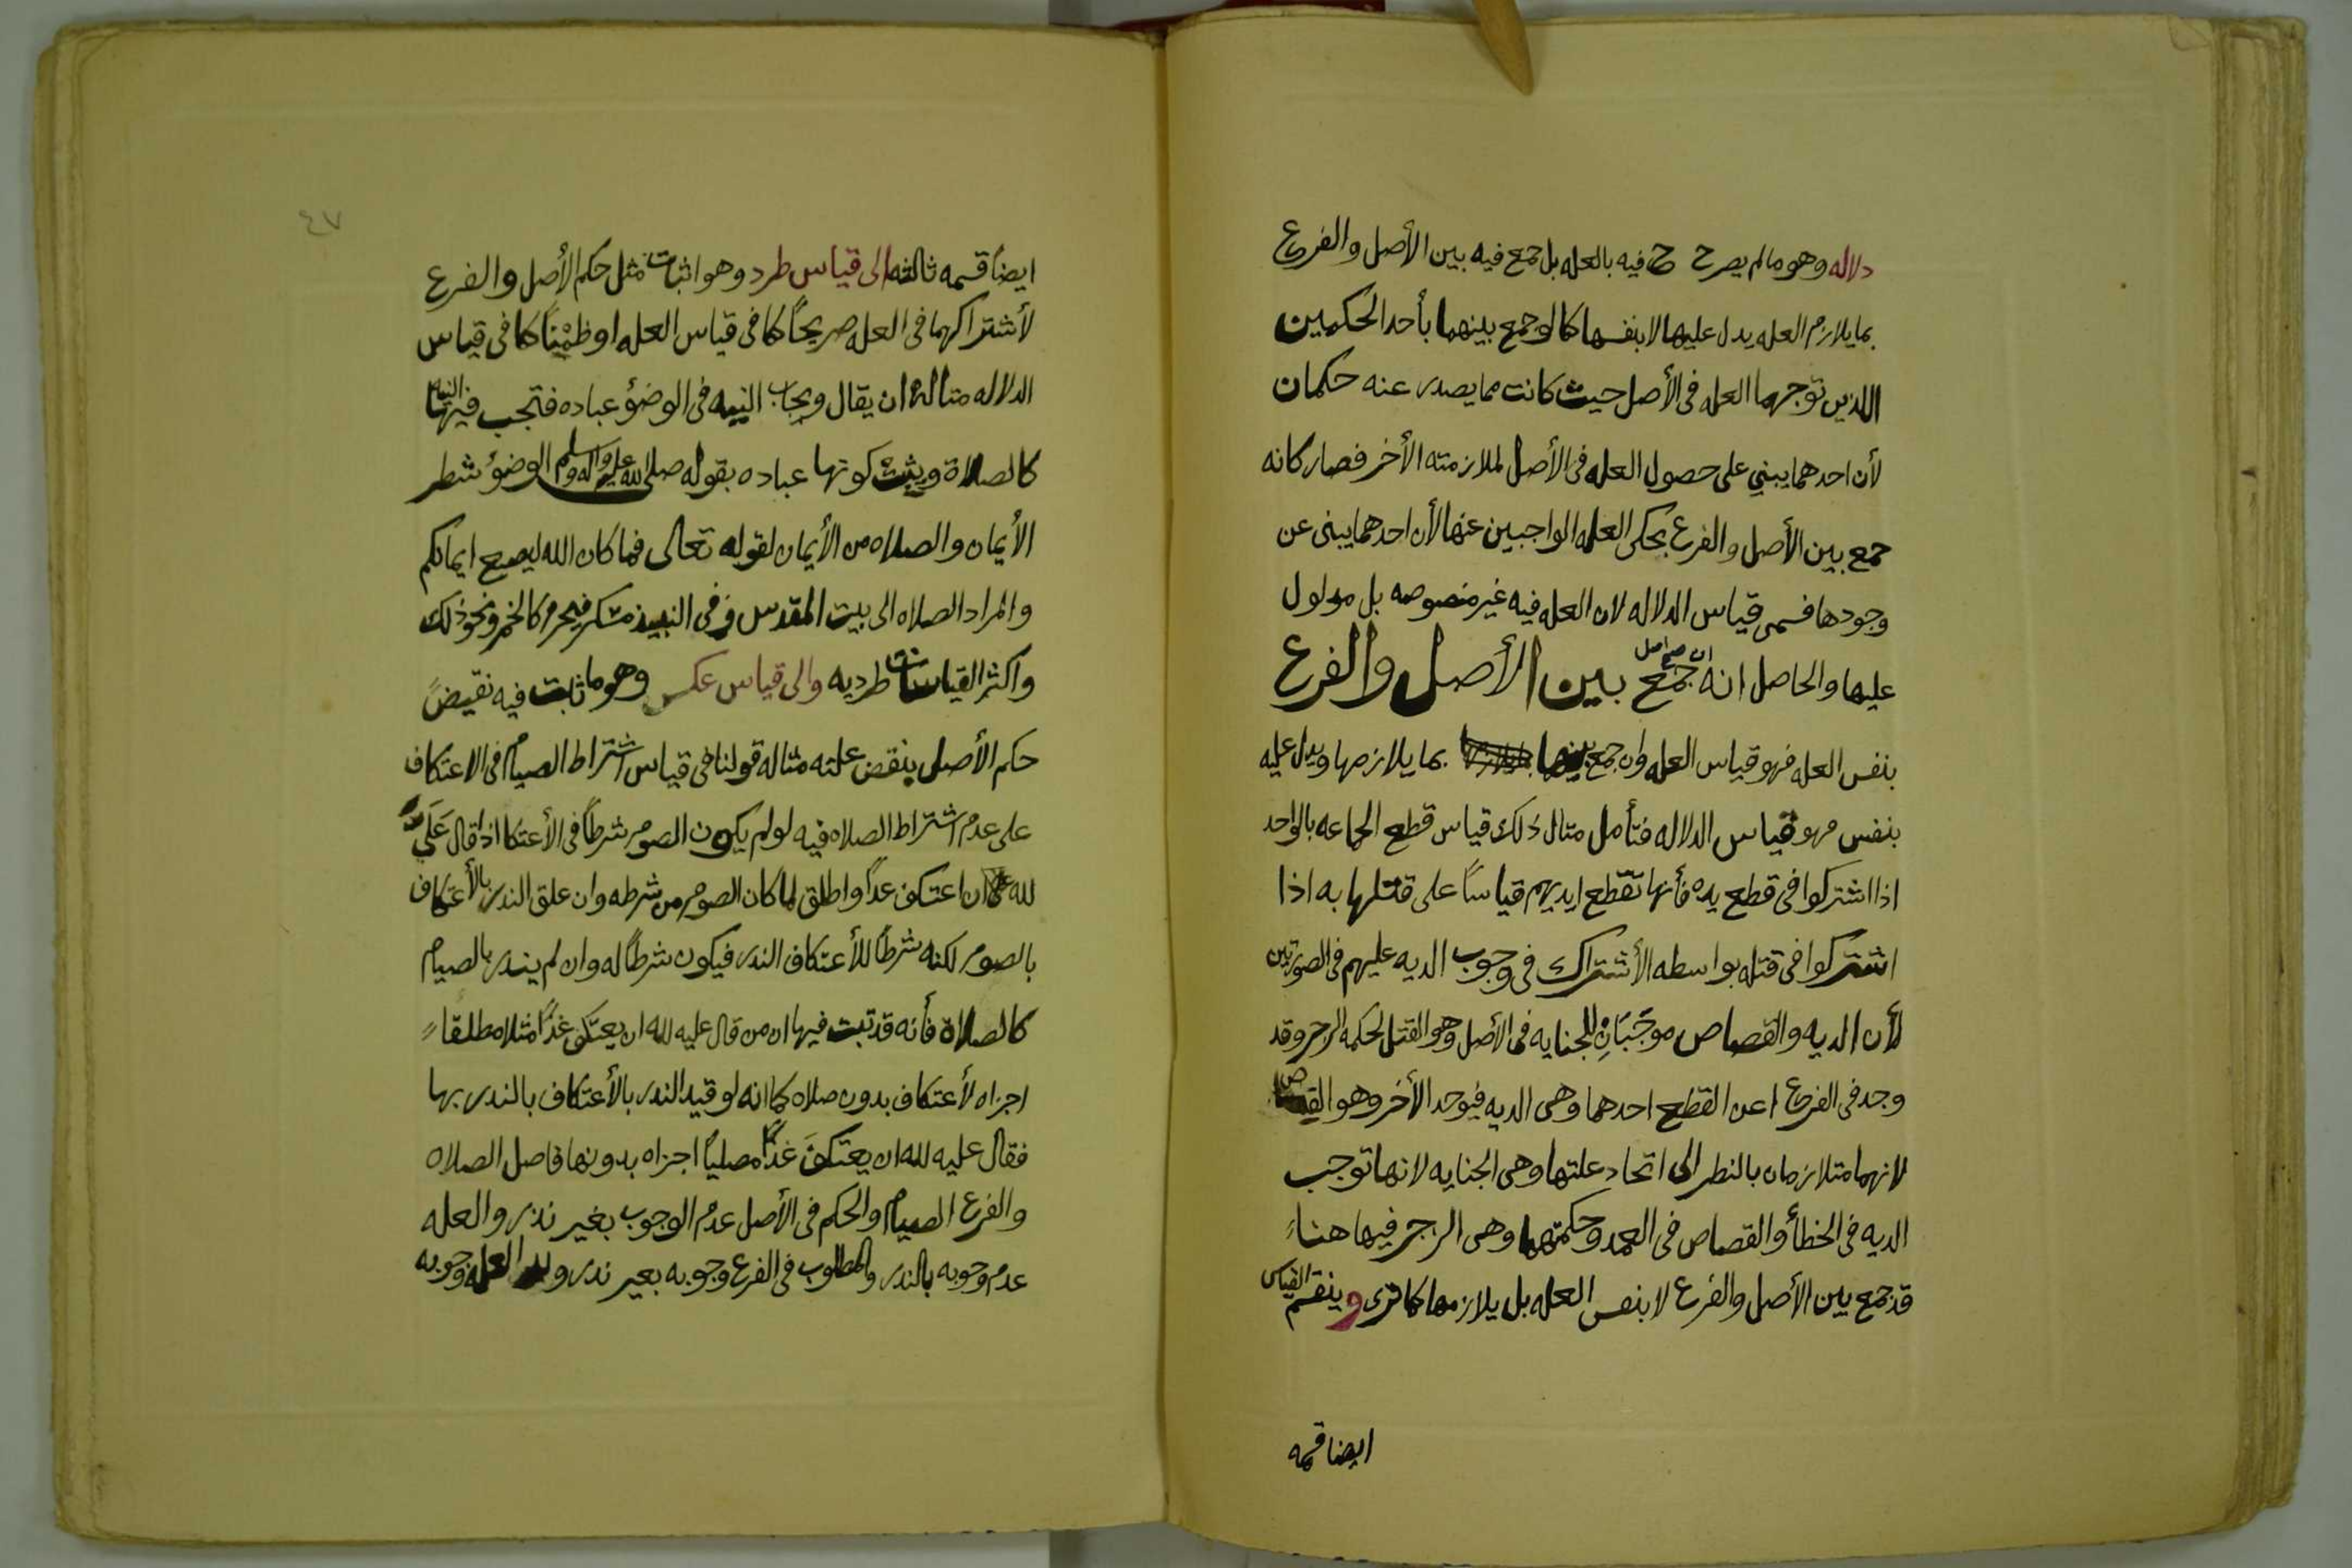 دلاله وهو ما لم يصرح ح فيه بالعله بل جمع فيه بين الأصل والفرع
بما يلازم العله يدل عليها لا بنفسها كما لو جمع بينهما بأحد الحكمين
اللذين توجهما العله فى الأصل حيث كانت مما يصدر عنه حكمان
لأن احدهما يبني على حصول العله فى الأصل لملازمته الأخر فصار كانه
جمع بين الأصل والفرع بحكى العله الواجبين عنها لأن احدهما يبنى عن
وجودها فسمى قياس الدلاله لان العله فيه غير منصوصه بل مدلول
عليها والحاصل انه ان جمع بين الأصل والفرع
بنفس العله فهو قياس العله وان جمع بينهما بما يلازمها ويدل عليه
بنفس فهو قياس الدلاله فتأمل مثال ذلك قياس قطع الجماعه بالواحد
اذا اشتركوا فى قطع يده فأنها تقطع ايديهم قياساً على قتلها به اذا
اشتركوا فى قتله بواسطه الأشتراك فى وجوب الديه عليهم فى الصورتين
لأن الديه والقصاص موجَبَانِ للجنايه فى الأصل وهو القتل لحكمه الزجر وقد
وجد فى الفرع اعن القطع احدهما وهى الديه فيوجد الأخر وهو القصاص
لانهما متلازمان بالنظر الى اتحاد علتها وهى الجنايه لانها توجب
الديه فى الخطأ والقصاص فى العمد وحكمتهما وهى الزجر فيها هنا
قد جمع بين الأصل والفرع لا بنفس العله بل يلازمها كما ترى وينقسم القياس
ايضا قسمه
٤٧
ايضاً قسمه ثالثه الى قياس طرد وهو اثبات مثل حكم الأصل والفرع
لأشتراكهما فى العله صريحاً كما فى قياس العله او ظمْناً كما فى قياس
الدلاله مثاله ان يقال وبجاب النيه فى الوضؤ عباده فتجب فيها النيه
كالصلاة ويثبت كونها عباده بقوله صلى الله عليه واله وسلم الوضؤ شطر
الأُيمان والصلاه من الأيمان لقوله تعالى فما كان الله ليضيع ايمانكم
والمراد الصلاه الى بيت المقدس وفى النبيذ مسكر فيحرم كالخمر ونحو ذلك
واكثر القياسات طرديه والى قياس عكس وهو ما ثابت فيه نقيضً
حكم الأصل بنقض علته مثاله قولنا فى قياس اشتراط الصيام فى الاعتكاف
على عدم اشتراط الصلاه فيه لو لم يكون الصوم شرطاً فى الأعتكا اذا قال عَلَي
لله ان اعتكف غداً واطلق لما كان الصوم من شرطه وان علق الندر بالأعتكاف
بالصوم لكنه شرطاً للأعتكاف الندر فيكون شرطاً له وان لم يندر بالصيام
كالصلاة فأنه قد ثبت فيها ان من قال عليه لله ان يعتكف غداً مثلا مطلقاً
اجزاه لأعتكاف بدون صلاه كما انه لو قيد الندر بالأعتكاف بالندر بها
فقال عليه لله ان يعتكفَ غداً مصلياً اجزاه بدونها فاصل الصلاه
والفرع الصيام والحكم فى الأصل عدم الوجوب بغير نذر والعله
عدم وجوبه بالندر والمطلوب فى الفرع وجوبه بغير ندر والعله وجوبه